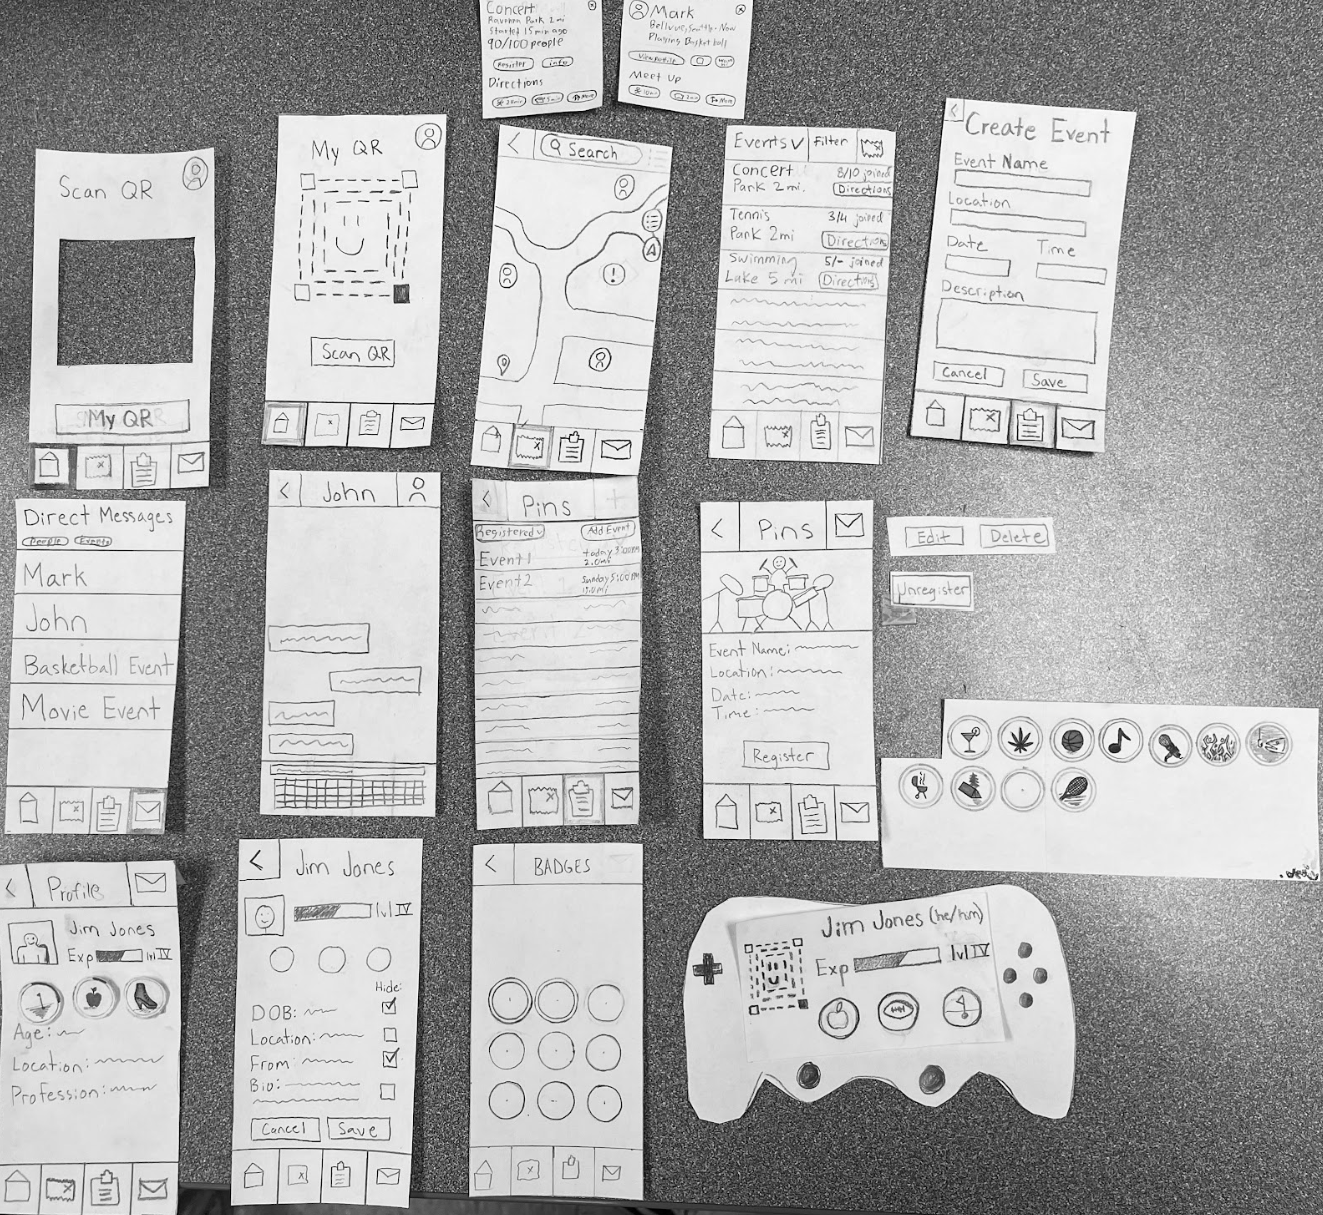 Concert
Ravenna Park 2 mi
Started 15 min ago
90/100 people
Register
info
Directions
More
Mark
Now
Playing Basketball
View profile
Meet Up
More
Scan QR
My QR
My QR
Scan QR
Search
Events
Filter
Concert 8/10 joined
Park 2 mi. Directions
Tennis 3/4 joined
Park 2mi Directions
Swimming 5/- joined
Lake 5 mi Directions
Create Event
Event Name
Location
Date Time
Description
Cancel Save
Direct Messages
People Events
Mark
John
Basketball Event
Movie Event
John
Pins
Registered Add Event
Event1 today 3:00PM
2.0mi
Event2 Sunday 5:00PM
Pins
Event Name:
Location:
Date:
Time:
Register
Edit Delete
Unregister
Profile
Jim Jones
Exp lvl IV
Age:
Location:
Profession:
Jim Jones
lvl IV
Hide:
DOB:
Location:
From:
Bio:
Cancel Save
BADGES
Jim Jones (he/him)
Exp lvl IV